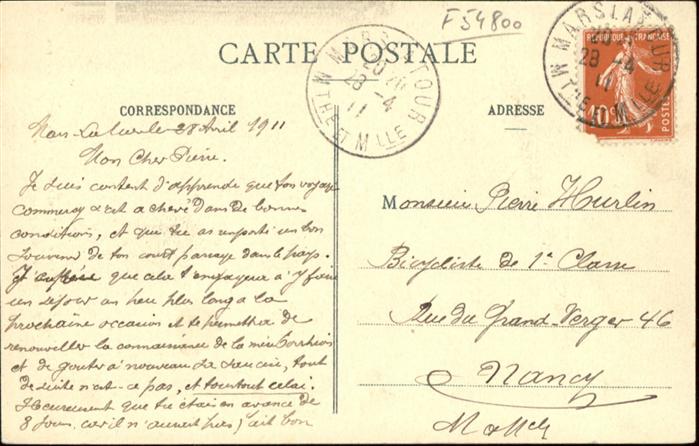 F54800
CARTE POSTALE
MARS LA TOUR
20
28 -4
11
MTHE ET MLLE
MARS LA TOUR
28 -4
11
MTHE MLLE
REPUBLIQUE FRANÇAISE
10c
POSTES
CORRESPONDANCE
ADRESSE
28 Avril 1911
Mon Cher Pierre.
Je suis content d'apprendre que ton voyage
commercy s'est achevé dans de bonnes
conditions, et que tu as emporté un bon
souvenir de ton court passage dans le pays.
J'espère que cela t'engagera à y faire
un séjour un peu plus long a la
prochaine occasion et te permettra de
renouveller la connaissance de
et de gouter à nouveau , tout
de suite n'est-ce pas, et surtout celui.
Heureusement que tu étais en avance de
8 Jours. car il n'aurait pas fait bon
Monsieur Pierre Hurlin
Bicycliste de 1e Classe
Rue du Grand-Verger 46
Nancy